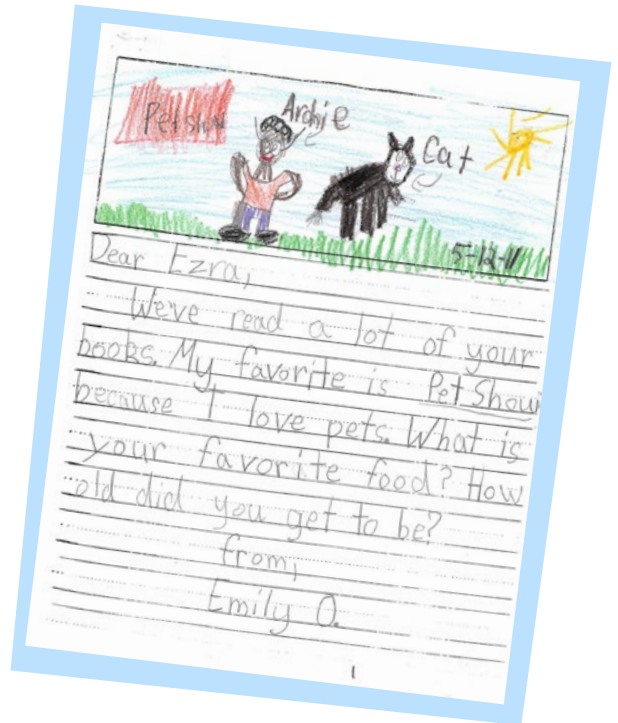 Pet Show
Archie
Cat
5-12-11
Dear Ezra,
We've read a lot of your
books. My favorite is Pet Show
because I love pets. What is
your favorite food? How
old did you get to be?
from,
Emily O.
1